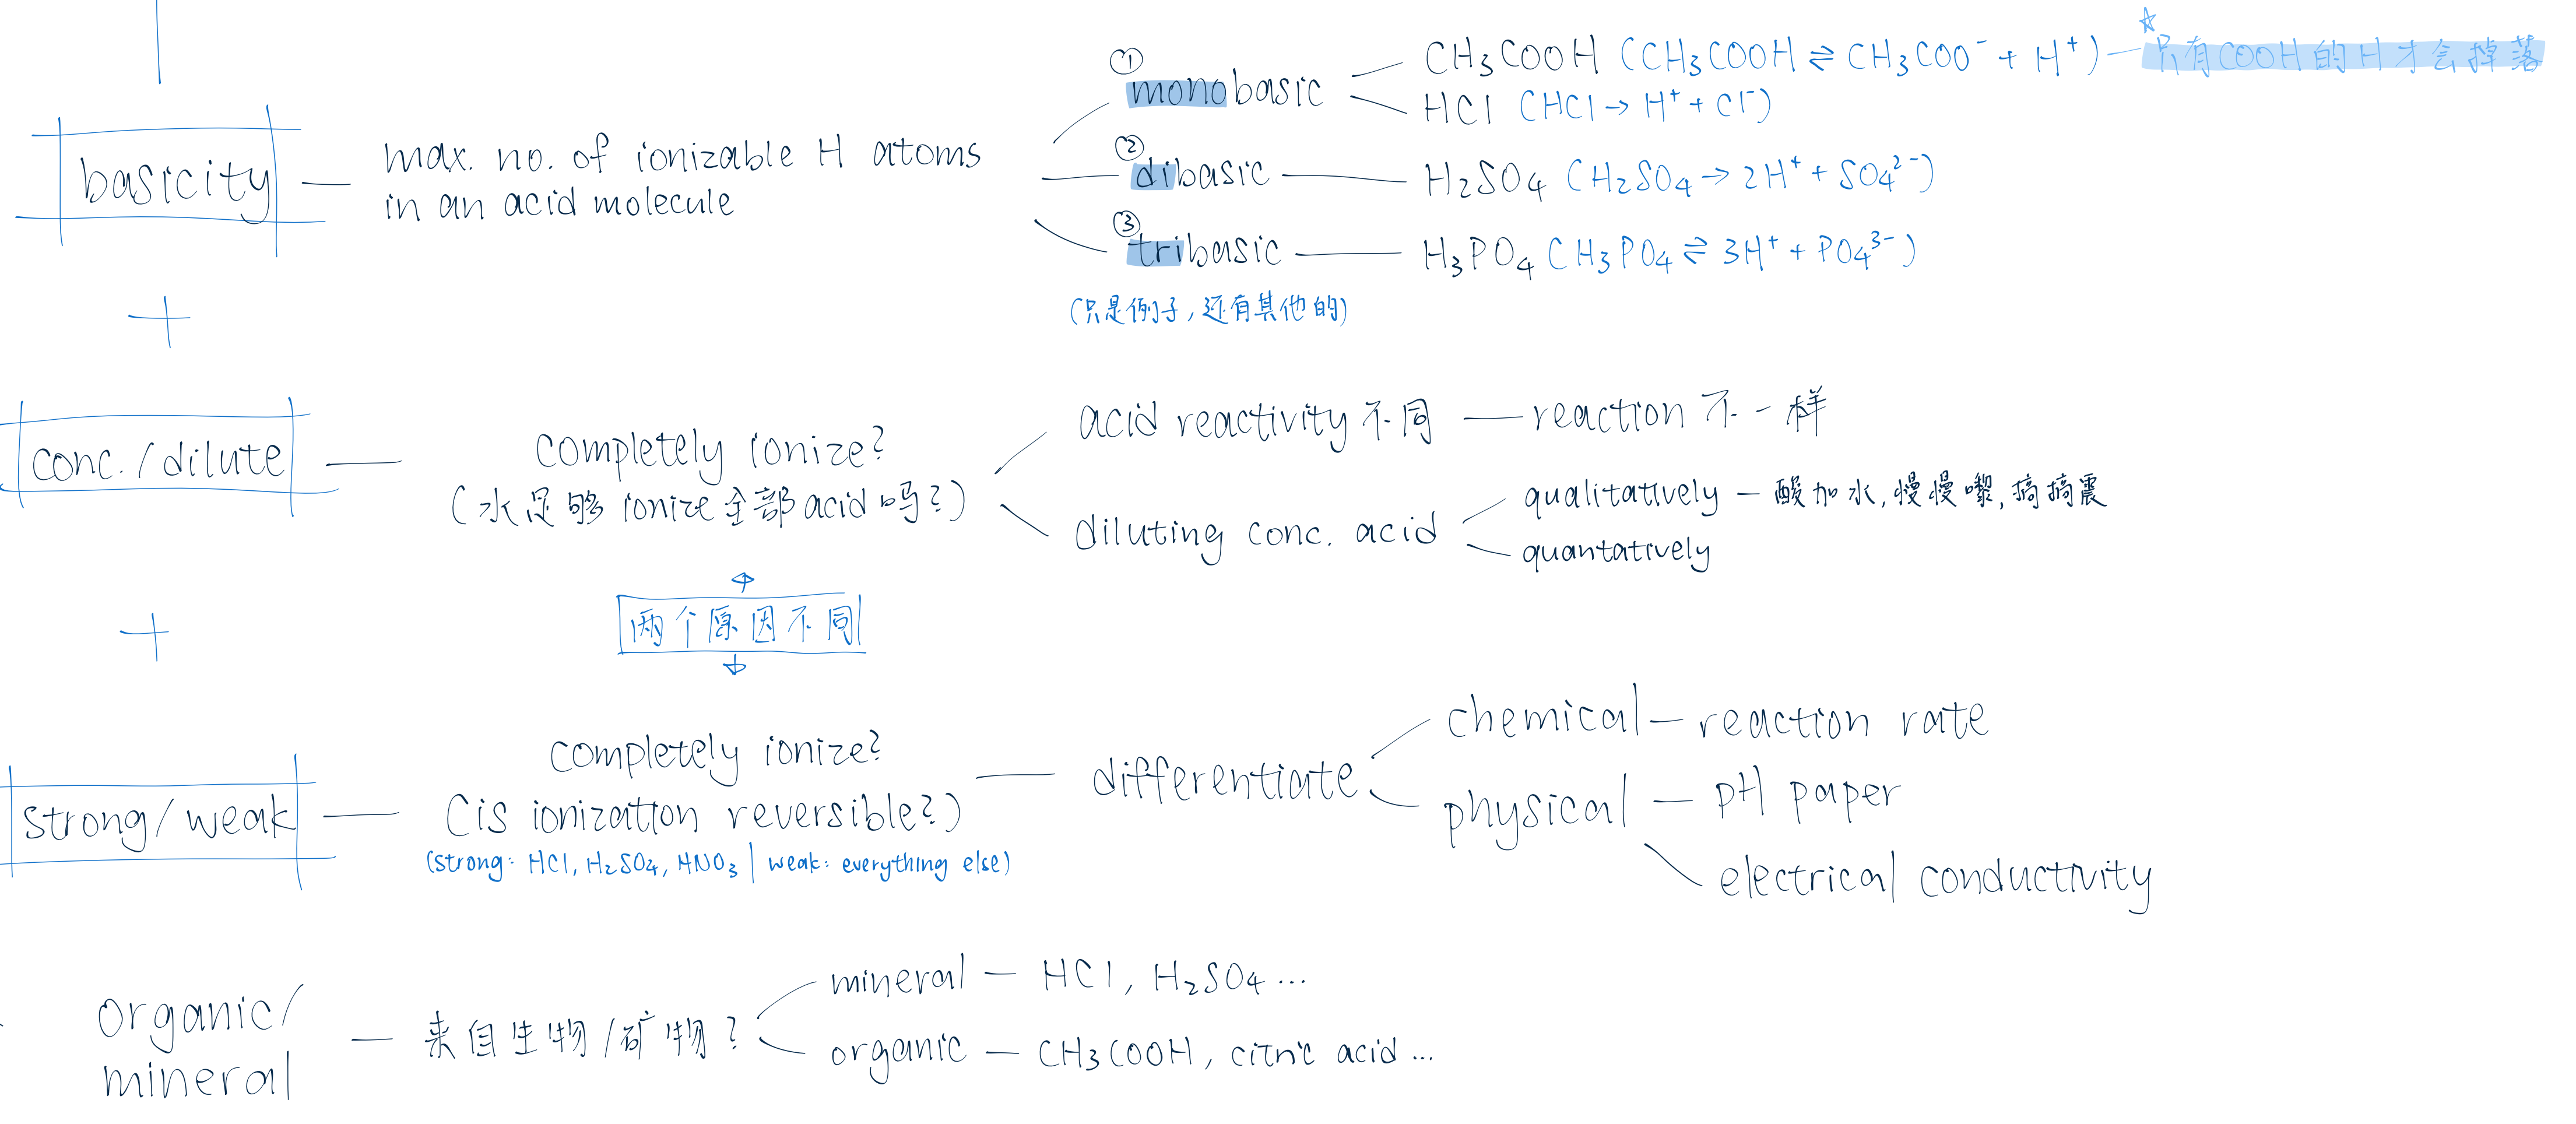 basicity
max. no. of ionizable H atoms
in an acid molecule
①
monobasic
CH₃COOH (CH₃COOH ⇌ CH₃COO⁻ + H⁺) — ☆ 只有COOH的H才会掉落
HCl (HCl → H⁺ + Cl⁻)
②
dibasic
H₂SO₄ (H₂SO₄ → 2H⁺ + SO₄²⁻)
③
tribasic
H₃PO₄ (H₃PO₄ ⇌ 3H⁺ + PO₄³⁻)
(只是例子,还有其他的)
+
conc./dilute
completely ionize?
(水足够 ionize 全部 acid 吗?)
acid reactivity 不同 — reaction 不一样
diluting conc. acid
qualitatively — 酸加水,慢慢嚟,搞搞震
quantatively
两个原因不同
+
strong/weak
completely ionize?
(is ionization reversible?)
(strong: HCl, H₂SO₄, HNO₃ | weak: everything else)
differentiate
chemical — reaction rate
physical — pH paper
electrical conductivity
organic/
mineral
来自生物/矿物?
mineral — HCl, H₂SO₄ ...
organic — CH₃COOH, citric acid ...